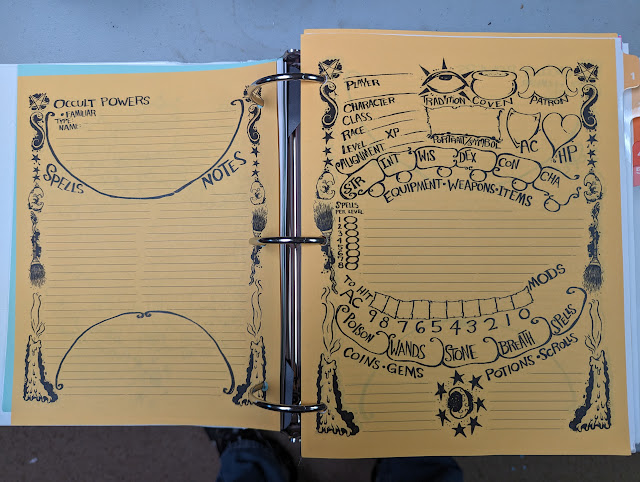 OCCULT POWERS
• FAMILIAR
TYPE
NAME:
SPELLS
NOTES
PLAYER
CHARACTER
CLASS
RACE
LEVEL XP
ALIGNMENT
TRADITION COVEN PATRON
PORTRAIT/SYMBOL
AC HP
STR INT WIS DEX CON CHA
EQUIPMENT • WEAPONS • ITEMS
SPELLS
PER LEVEL
1
2
3
4
5
6
7
8
TO HIT MODS
AC 9 8 7 6 5 4 3 2 1 0
POISON WANDS STONE BREATH SPELLS
COINS • GEMS POTIONS • SCROLLS
1